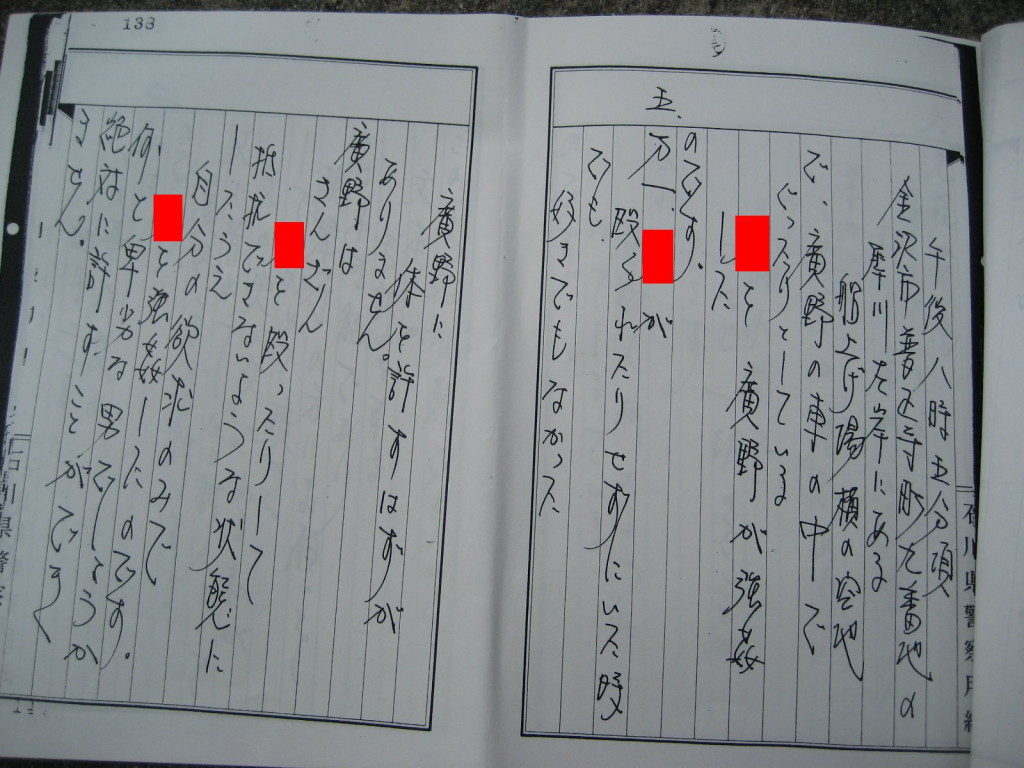 午後八時五分頃
金沢市普正寺町九番地の
犀川左岸にある
船上げ場横の空地
で、廣野の車の中で
ぐったりとしている
を 廣野が強姦
した
のです。
五、
万一、 が
殴られたりせずにいた時
でも、
好きでもなかった
石川県警察用紙
133
廣野に
体を許すはずが
ありません。
廣野は
さんざん
を殴ったりして
抵抗できないような状態に
したうえ
自分の欲求のみで
を強姦したのです。
何と卑劣な男でしょうか
絶対に許すことができ
ません。
石川県警察